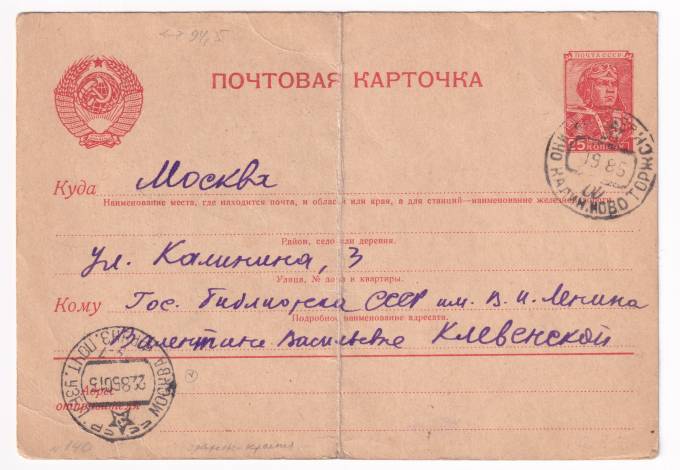 94,5
ПОЧТОВАЯ КАРТОЧКА
ПОЧТА СССР
25 КОПЕЕК
Куда Москва
Наименование места, где находится почта, и области или края, а для станций—наименование железной дороги.
Район, село или деревня.
ул. Калинина, 3
Улица, № дома и квартиры.
Кому Гос. Библиотека СССР им. В. И. Ленина
Подробное наименование адресата.
Валентине Васильевне Клевенской
Адрес
отправителя
МОСКВА